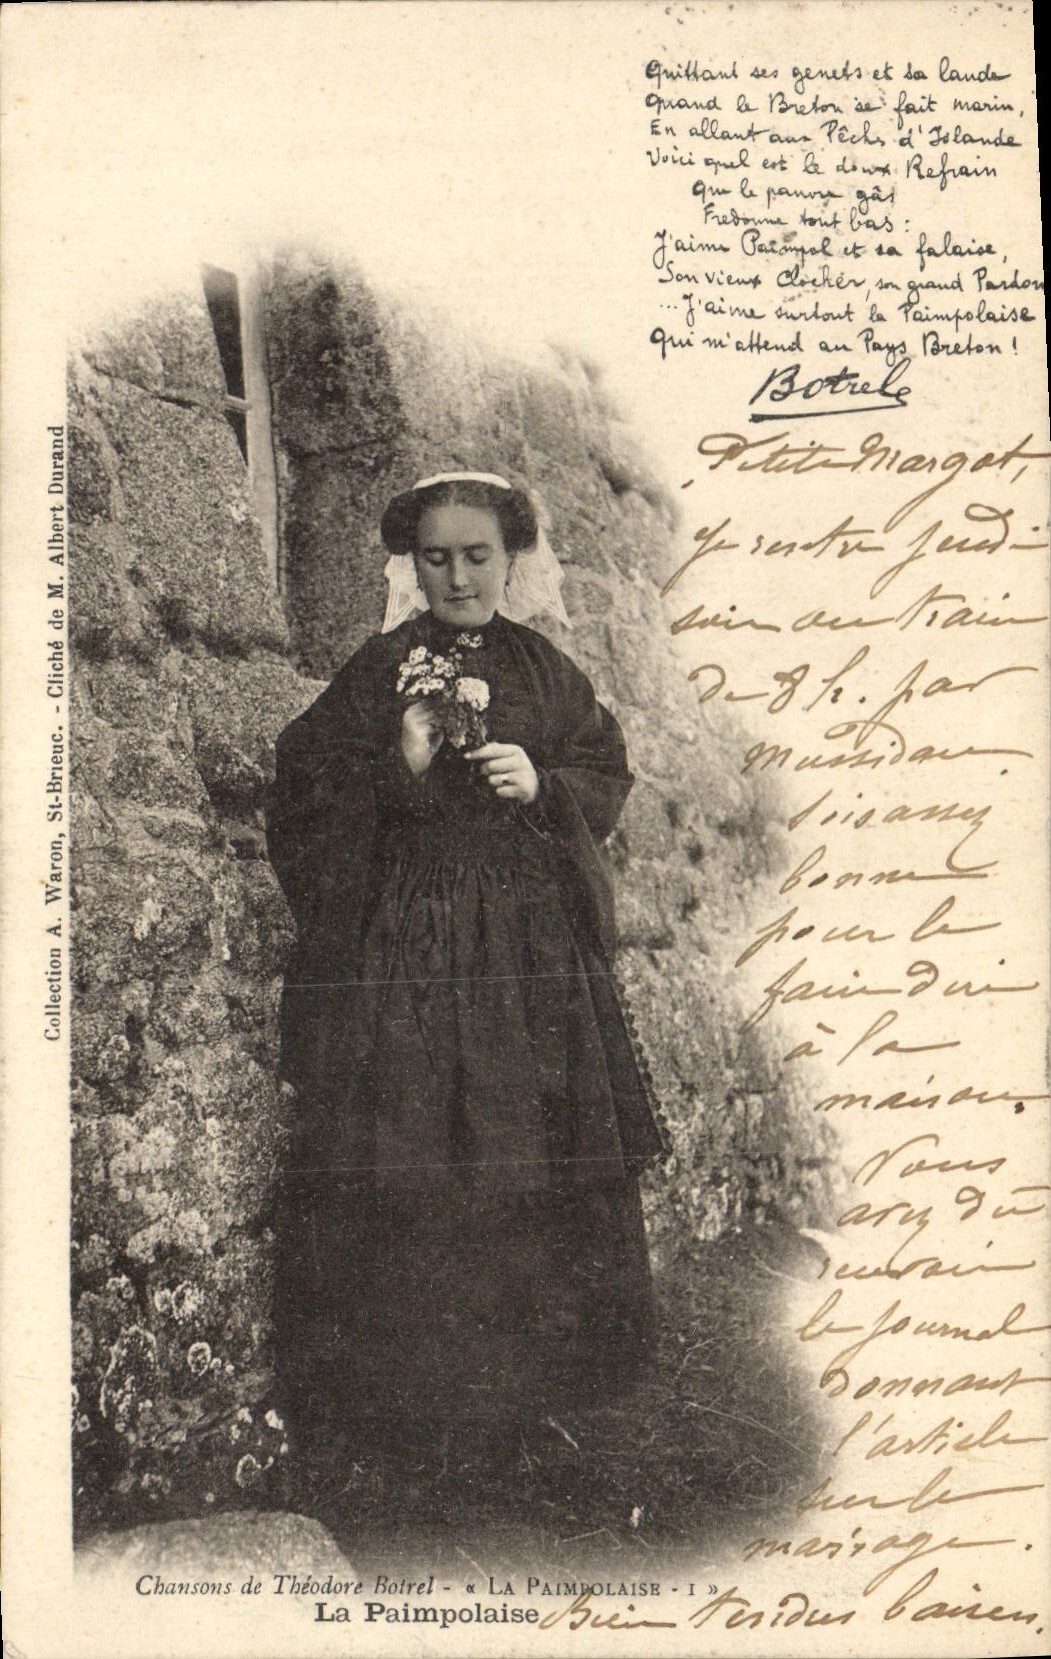 Quittant ses genets et sa lande
Quand le Breton se fait marin,
En allant aux Pêches d'Islande
Voici quel est le doux Refrain
Que le pauvre gâs
Fredonne tout bas :
J'aime Paimpol et sa falaise,
Son vieux Clocher, son grand Pardon
... J'aime surtout la Paimpolaise
Qui m'attend au Pays Breton !
Botrel
Petite Margot,
Je rentre Jeudi
soir au train
de 8 h. par
Mussidan.
Sois assez
bonne
pour le
faire dire
à la
maison.
Vous
avez dû
recevoir
le journal
donnant
l'article
sur le
mariage.
Bien tendres baisers.
Collection A. Waron, St-Brieuc. - Cliché de M. Albert Durand
Chansons de Théodore Botrel - « LA PAIMPOLAISE - I »
La Paimpolaise